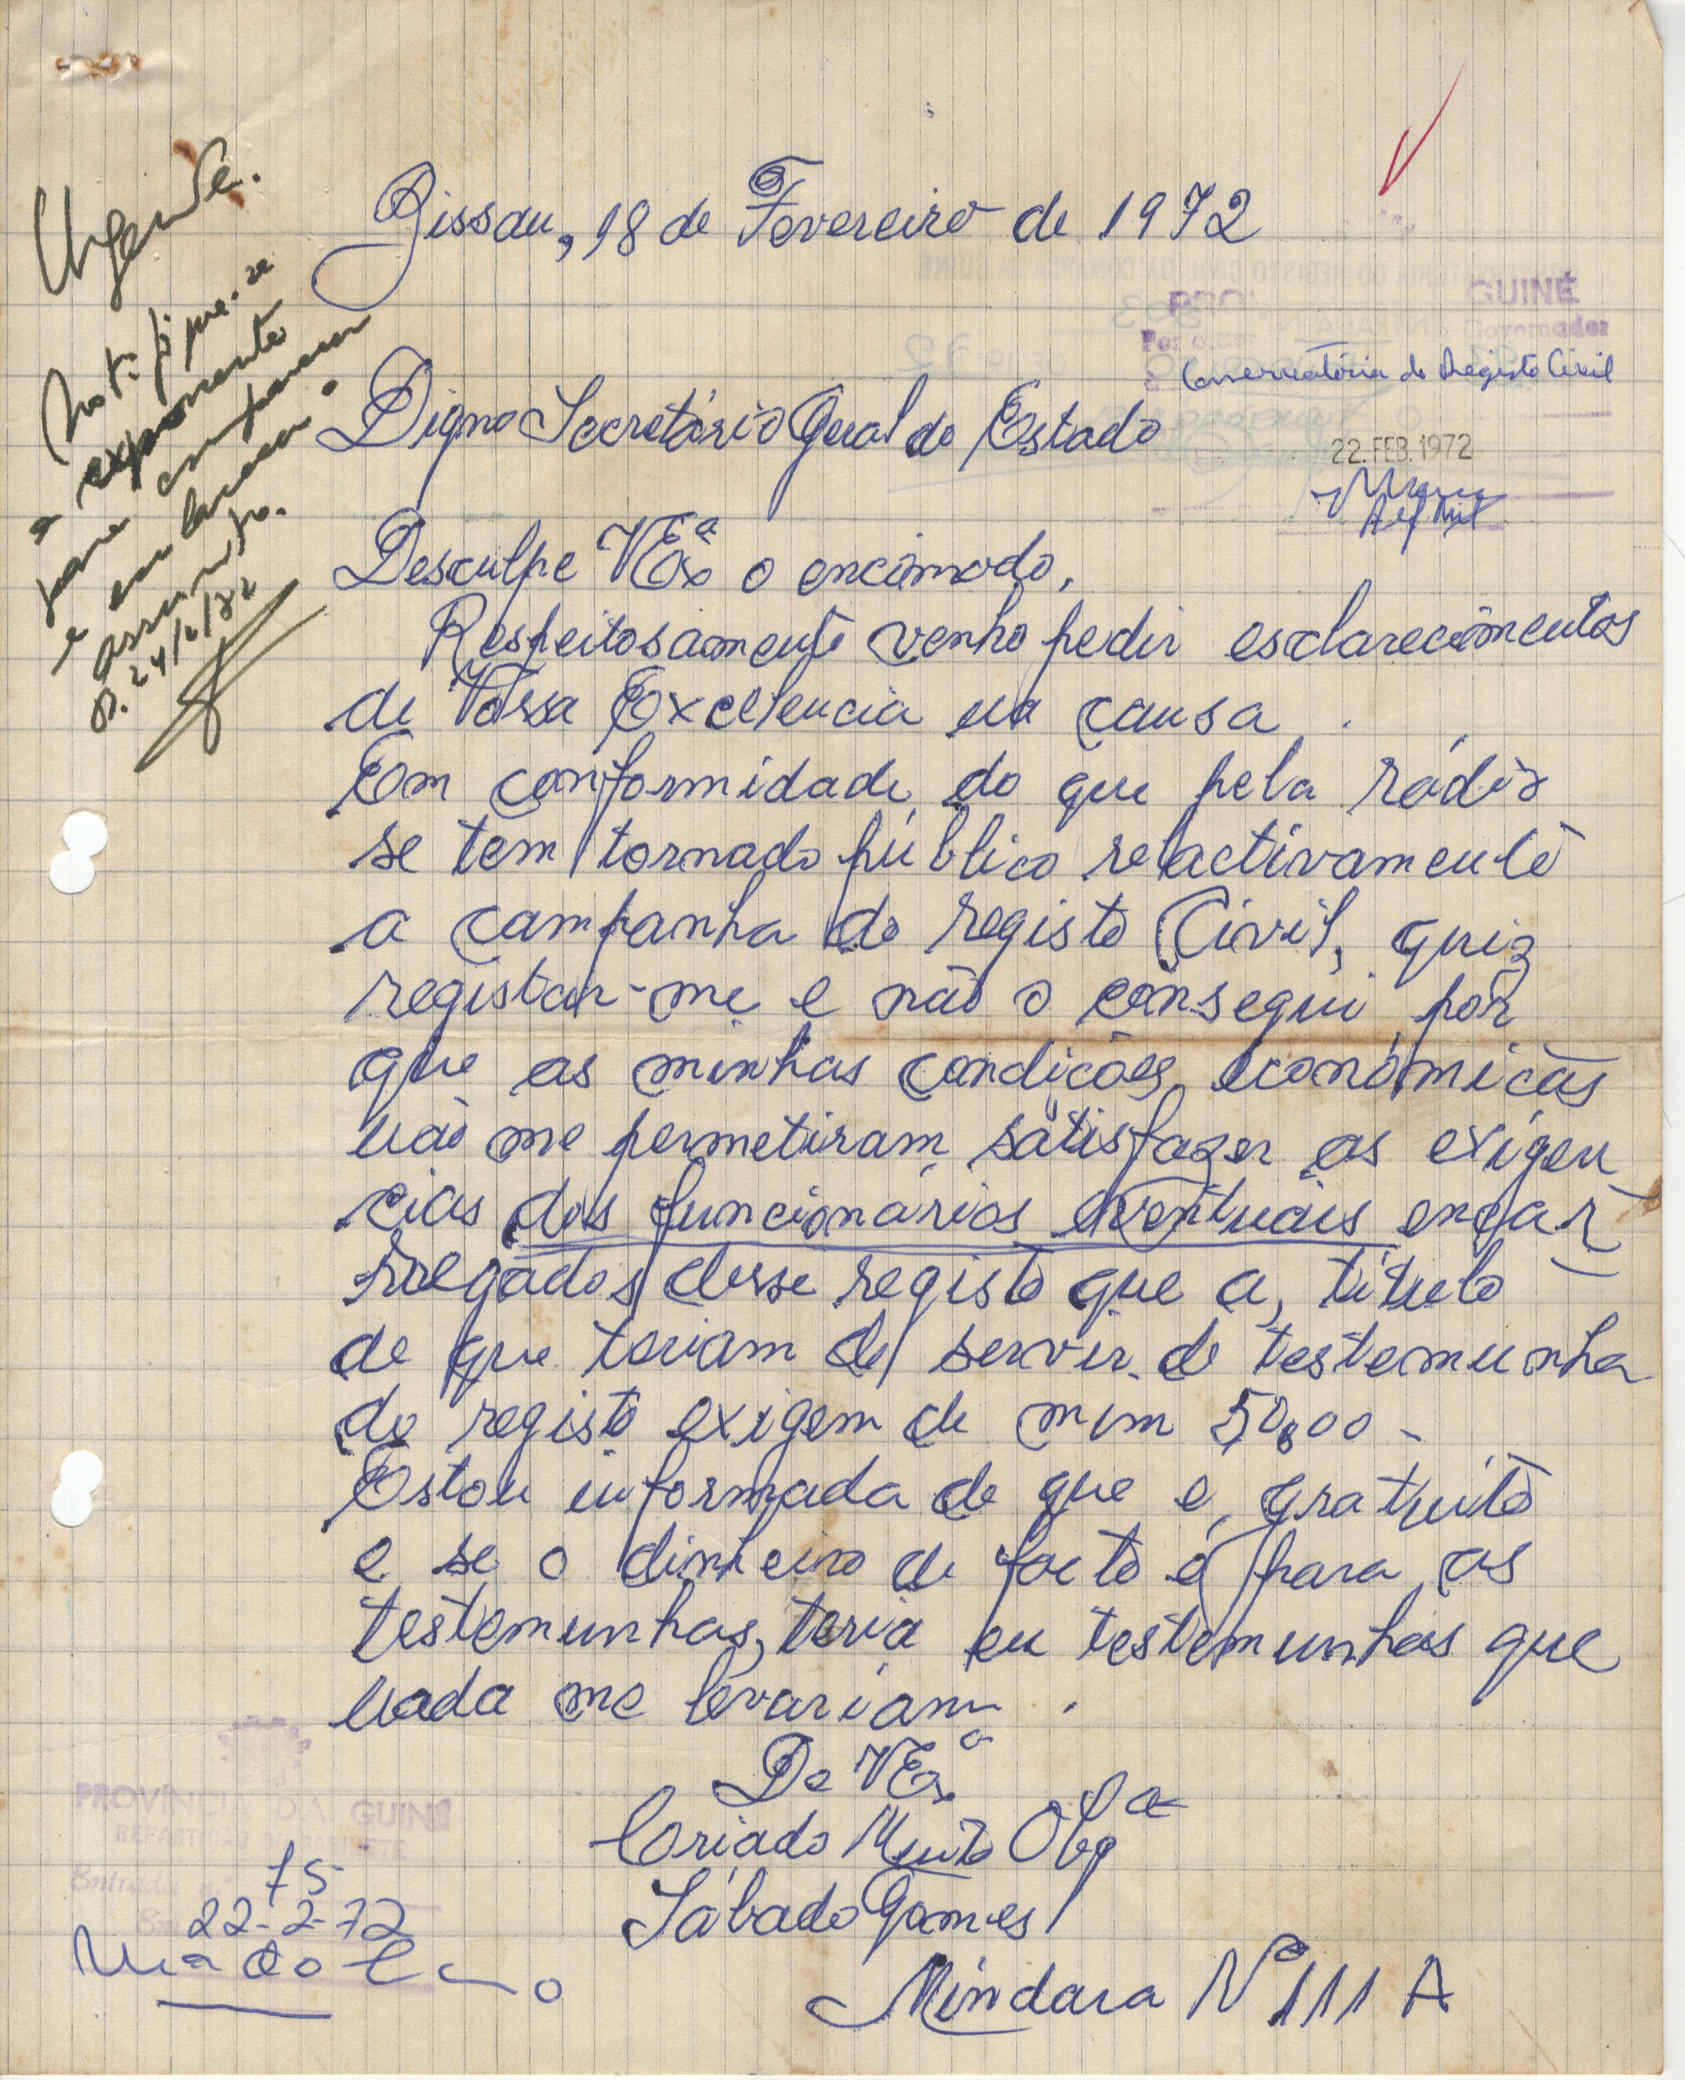 Urgente.
Notifique-se
o exponente
para comparecer
e esclarecer o
assunto.
B. 24/2/72
Bissau, 18 de Fevereiro de 1972
GUINÉ
Governador
Conservatória do Registo Civil
22. FEB. 1972
Digno Secretário Geral do Estado
Desculpe VExª o encómodo,
Respeitosamente venho pedir esclarecimentos
de Vossa Excelencia na causa.
Em conformidade do que pela rádio
se tem tornado público relactivamente
a campanha do registo Civil, quiz
registar-me e não o consegui por
que as minhas condições económicas
não me permetiram satisfazer as exigen
cias dos funcionários eventuais encar
regados desse registo que a, título
de que teriam de servir de testemunha
do registo exigem de mim 50,00-
Estou informada de que é gratuito
e se o dinheiro de facto é para as
testemunhas, teria eu testemunhas que
nada me levariam.
De VExª
Criado Muito Obgª
Sábado Gomes
Mindara Nº 111 A
PROVÍNCIA DA GUINÉ
REPARTIÇÃO DO GABINETE
Entrada nº
75
22-2-72